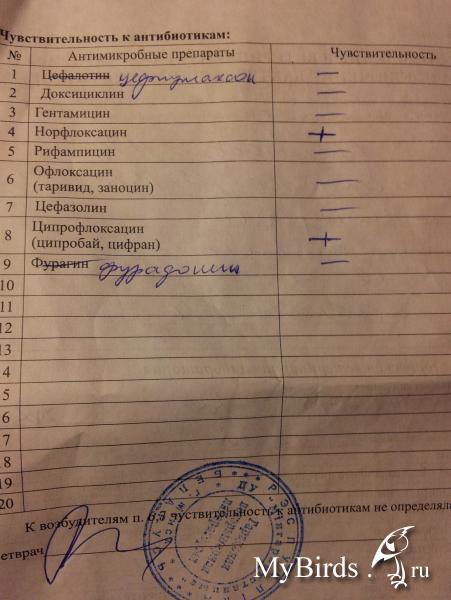 Чувствительность к антибиотикам:
№ Антимикробные препараты Чувствительность
1 Цефалотин цефтриаксон —
2 Доксициклин —
3 Гентамицин —
4 Норфлоксацин +
5 Рифампицин —
6 Офлоксацин
(таривид, заноцин) —
7 Цефазолин —
8 Ципрофлоксацин
(ципробай, цифран) +
9 Фурагин фурадонин —
10
11
12
13
4
5
6
7
18
19
20
К возбудителям п. 6,7 чувствительность к антибиотикам не определяла
етврач
MyBirds.ru